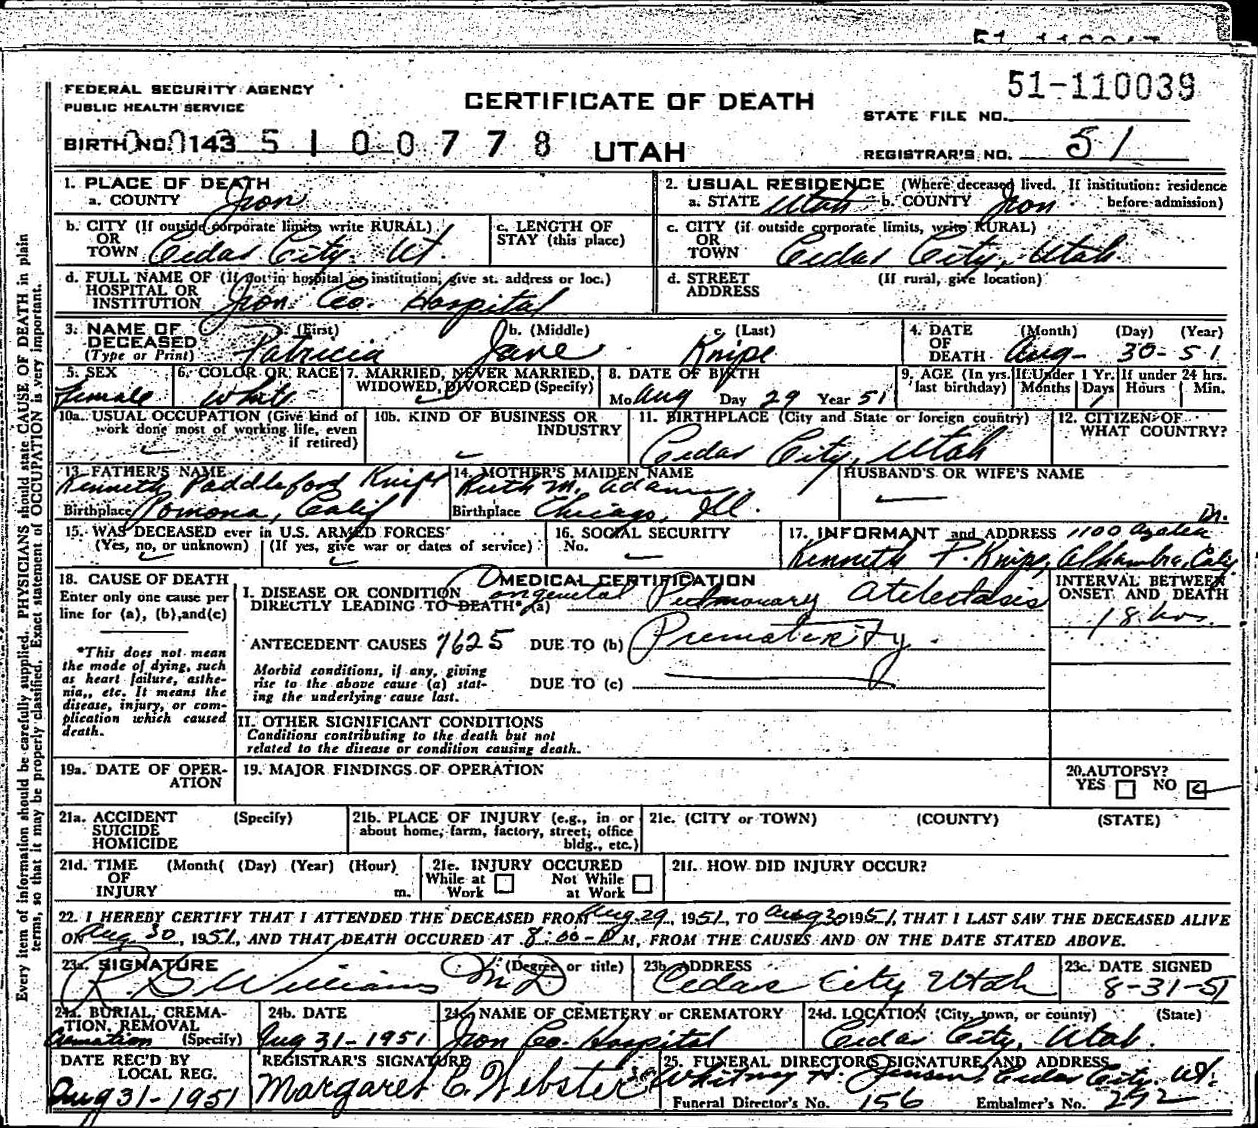 51-110039
FEDERAL SECURITY AGENCY
PUBLIC HEALTH SERVICE
CERTIFICATE OF DEATH
STATE FILE NO.
BIRTH NO. 143 5 1 0 0 7 7 8
UTAH
REGISTRAR'S NO. 51
Every item of information should be carefully supplied. PHYSICIANS should state CAUSE OF DEATH in plain
terms, so that it may be properly classified. Exact statement of OCCUPATION is very important.
1. PLACE OF DEATH
a. COUNTY Iron
2. USUAL RESIDENCE (Where deceased lived. If institution: residence
a. STATE Utah b. COUNTY Iron before admission)
b. CITY (If outside corporate limits, write RURAL)
OR
TOWN Cedar City. Ut.
c. LENGTH OF
STAY (this place)
c. CITY (if outside corporate limits, write RURAL)
OR
TOWN Cedar City, Utah
d. FULL NAME OF (If not in hospital or institution, give st. address or loc.)
HOSPITAL OR
INSTITUTION Iron Co. Hospital
d. STREET (If rural, give location)
ADDRESS
3. NAME OF (First) b. (Middle) c. (Last)
DECEASED
(Type or Print) Patricia Jane Knipe
4. DATE (Month) (Day) (Year)
OF
DEATH Aug- 30-51
5. SEX
Female
6. COLOR OR RACE
White
7. MARRIED, NEVER MARRIED,
WIDOWED, DIVORCED (Specify)
8. DATE OF BIRTH
Mo. Aug Day 29 Year 51
9. AGE (In yrs. last birthday)
If Under 1 Yr. Months Days 1
If under 24 hrs. Hours Min.
10a. USUAL OCCUPATION (Give kind of
work done most of working life, even
if retired)
10b. KIND OF BUSINESS OR
INDUSTRY
11. BIRTHPLACE (City and State or foreign country)
Cedar City, Utah
12. CITIZEN OF
WHAT COUNTRY?
13. FATHER'S NAME
Kenneth Paddleford Knipe
Birthplace Pomona, Calif
14. MOTHER'S MAIDEN NAME
Ruth M. Adams
Birthplace Chicago, Ill.
HUSBAND'S OR WIFE'S NAME
15. WAS DECEASED ever in U.S. ARMED FORCES?
(Yes, no, or unknown) (If yes, give war or dates of service)
16. SOCIAL SECURITY
No.
Dr.
17. INFORMANT and ADDRESS 1100 Azalea
Kenneth P. Knipe, Alhambra, Calif
18. CAUSE OF DEATH
Enter only one cause per
line for (a), (b), and (c)
*This does not mean
the mode of dying, such
as heart failure, asthe-
nia,, etc. It means the
disease, injury, or com-
plication which caused
death.
MEDICAL CERTIFICATION
I. DISEASE OR CONDITION
DIRECTLY LEADING TO DEATH* (a) Congenital Pulmonary Atelectasis
ANTECEDENT CAUSES 7625 DUE TO (b) Prematurity
Morbid conditions, if any, giving
rise to the above cause (a) stat-
ing the underlying cause last.
DUE TO (c)
INTERVAL BETWEEN
ONSET AND DEATH
18 hrs.
II. OTHER SIGNIFICANT CONDITIONS
Conditions contributing to the death but not
related to the disease or condition causing death.
19a. DATE OF OPER-
ATION
19. MAJOR FINDINGS OF OPERATION
20. AUTOPSY?
YES NO
21a. ACCIDENT (Specify)
SUICIDE
HOMICIDE
21b. PLACE OF INJURY (e.g., in or
about home, farm, factory, street, office
bldg., etc.)
21c. (CITY or TOWN) (COUNTY) (STATE)
21d. TIME (Month( (Day) (Year) (Hour)
OF
INJURY m.
21e. INJURY OCCURED
While at Work Not While at Work
21f. HOW DID INJURY OCCUR?
22. I HEREBY CERTIFY THAT I ATTENDED THE DECEASED FROM Aug. 29, 1951, TO Aug 30 1951, THAT I LAST SAW THE DECEASED ALIVE
ON Aug 30, 1951, AND THAT DEATH OCCURED AT 8:00 M, FROM THE CAUSES AND ON THE DATE STATED ABOVE.
23a. SIGNATURE (Degree or title)
Williams MD
23b. ADDRESS
Cedar City Utah
23c. DATE SIGNED
8-31-51
24a. BURIAL, CREMA-
TION, REMOVAL
(Specify)
24b. DATE
Aug 31-1951
24c. NAME OF CEMETERY or CREMATORY
Iron Co. Hospital
24d. LOCATION (City, town, or county) (State)
Cedar City, Utah.
DATE REC'D BY
LOCAL REG.
Aug 31-1951
REGISTRAR'S SIGNATURE
Margaret C. Webster
25. FUNERAL DIRECTOR'S SIGNATURE AND ADDRESS
Whitney Jensen, Cedar City. Ut.
Funeral Director's No. 156 Embalmer's No. 272